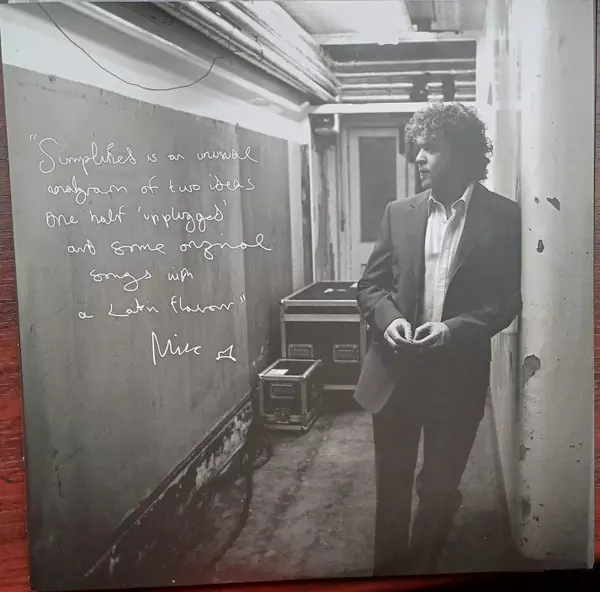 "Simplified is an unusual
anagram of two ideas
one half 'unplugged'
and some original
songs with
a Latin flavour"
Mick